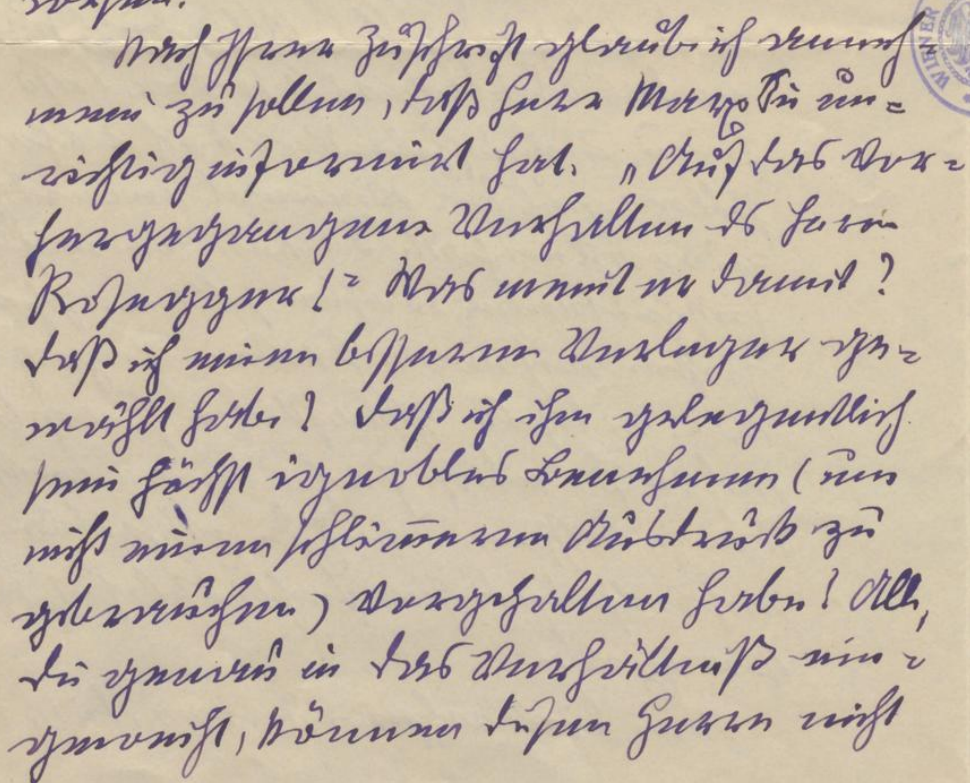 Nach Ihrer Zuschrift glaub ich anneh
men zu sollen, daß Herr Marx Sie un=
richtig informirt hat. „Auf das vor=
hergegangene Verhalten ds Herrn
Rosegger!“ Was meint er damit?
Daß ich einen besseren Verleger ge=
wählt habe? Daß ich ihm gelegentlich
sein höchst ignobles Benehmen (um
nicht einen schlimmeren Ausdruck zu
gebrauchen) vorgehalten habe? Alle,
die genau in das Verhältniß ein=
geweiht, können diesen Herrn nicht
WIENER